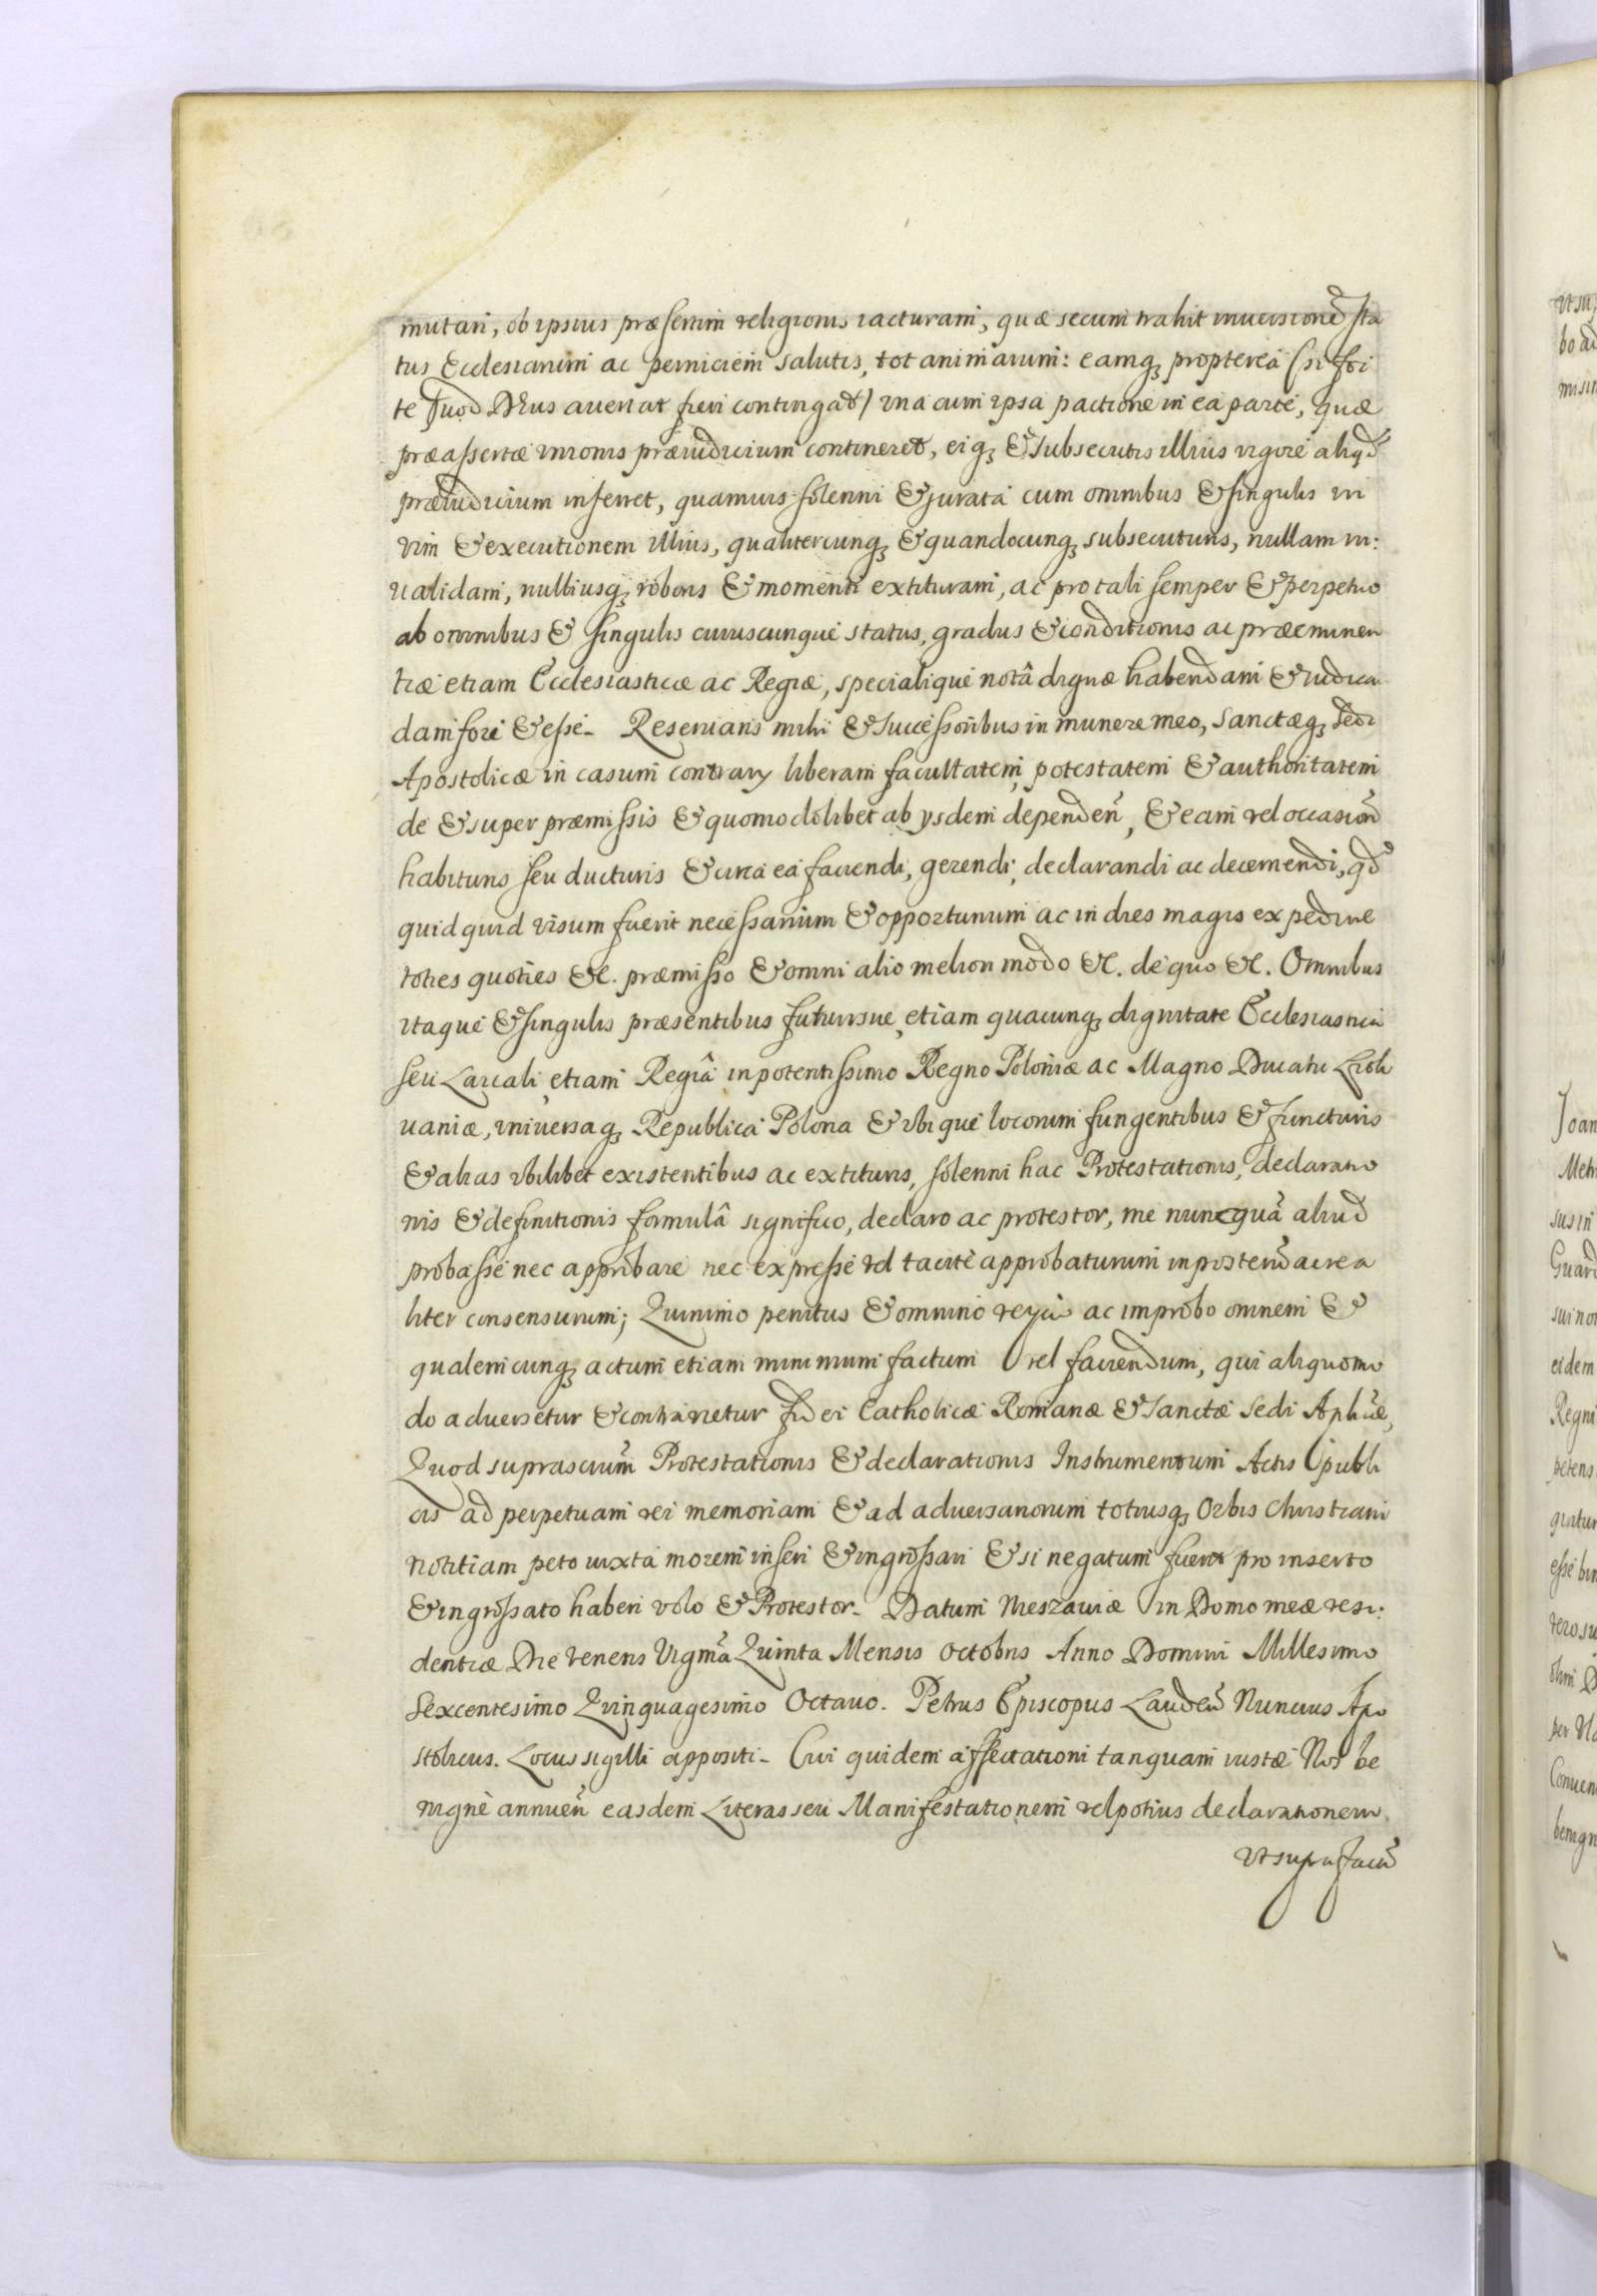 mutari, ob ipsius præsertim religionis iacturam, quæ secum trahit inuersionẽ sta
tus Ecclesiarum ac perniciem salutis, tot animarum: eamq₃ propterea (si for
te quod Deus auertat fieri contingat) vna cum ipsa pactione in ea parte, quæ
præassertæ vnionis præiudicium contineret, eiq₃ & subsecutis illius vigore aliqd
præiudicium inferret, quamuis solenni & jurata cum omnibus & singulis in
vim & executionem illius, qualitercunq₃ & quandocunq₃ subsecuturis, nullam in:
ualidam, nulliusq₃ roboris & momenti extituram, ac pro tali semper & perpetuo
ab omnibus & singulis cuiuscunque status, gradus & conditionis ac præeminen
tiæ etiam Ecclesiasticæ ac Regiæ, specialique notâ dignæ habendam & iudican
dam fore & esse. Reseruans mihi & successoribus in munere meo, Sanctæq₃ Sedi
Apostolicæ in casum contrary liberam facultatem, potestatem & authoritatem
de & super præmissis & quomodolibet ab ysdem dependeñ, & eam vel occasionẽ
habituris seu ducturis & circa ea faciendi, gerendi, declarandi ac decernendi, qd
quid quid visum fuerit necessarium & opportunum ac in dies magis expedire
toties quoties &c. præmisso & omni alio meliori modo &c. de quo &c. Omnibus
itaque & singulis præsentibus futurisue, etiam quacunq₃ dignitate Ecclesiastica
seu Laicali, etiam Regiâ in potentissimo Regno Poloniæ ac Magno Ducatu Lith
uaniæ, vniuersaq₃ Republica Polona & vbique locorum fungentibus & functuris
& alias vbilibet existentibus ac extituris, solenni hac Protestationis, declaratio
nis & definitionis formulâ significo, declaro ac protestor, me nuncquã aliud
probasse nec approbare nec expresse vel tacitè approbaturum in posterũ ac rea
liter consensurum; Quinimo penitus & omnino reyicio ac improbo omnem &
qualemcunq₃ actum etiam minimum factum vel faciendum, qui aliquomo
do aduersetur & contrarietur fidei Catholicæ Romanæ & Sanctæ Sedi Apliçæ,
Quod suprascriptum Protestationis & declarationis Instrumentum Actis publi
cis ad perpetuam rei memoriam & ad aduersariorum totiusq₃ Orbis Christiani
notitiam peto iuxta morem inseri & ingrossari & si negatum fuerit pro inserto
& ingrossato haberi volo & Protestor. Datum Nieszauiæ in Domo meæ resi:
dentiæ Die Veneris Vigm̃a Quinta Mensis Octobris Anno Domini Millesimo
Sexcentesimo Quinquagesimo Octauo. Petrus Episcopus Laudeñ Nuncius Apo
stolicus. Locus sigilli appositi. Cui quidem affectationi tanquam iustæ Nos be
nignè annueñ easdem Literas seu Manifestationem vel potius declarationem
vt supra factã